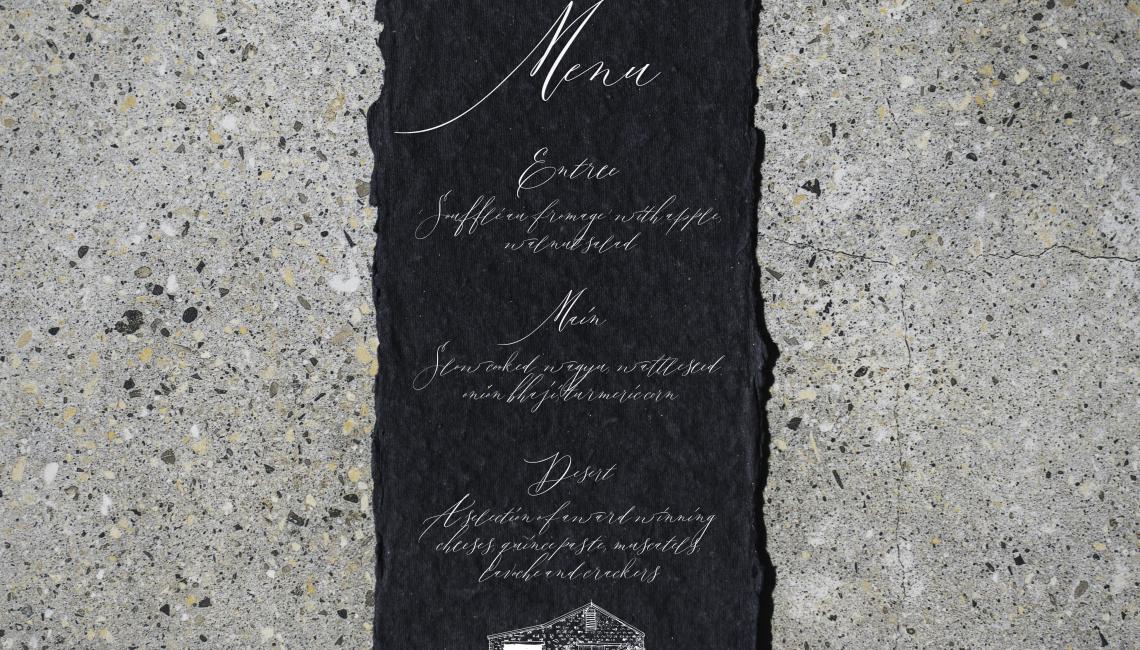 Menu
Entree
Soufflé au fromage with apple,
walnut salad
Main
Slow cooked, wagyu, wattlesled,
onion bhaji turmeric corn
Desert
A selection of award winning
cheeses, quince paste, muscatels,
lavoche and crackers